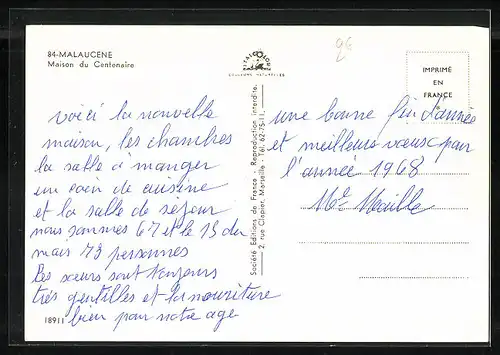 84-MALAUCÈNE
Maison du Centenaire
ITALCOLOR
COULEURS NATURELLES
96
IMPRIMÉ
EN
FRANCE
voici la nouvelle
maison, les chambres
la salle à manger
un coin de cuisine
et la salle de séjour
nous sommes 67 et le 13 du
mois 73 personnes
Les sœurs sont toujours
très gentilles et la nourriture
bien pour notre age
18911
Société Editions de France - Reproduction interdite.
2, rue Clapier, Marseille - Tél. 62-75-11.
une bonne fin d'année
et meilleurs vœux pour
l'année 1968
Me Maille